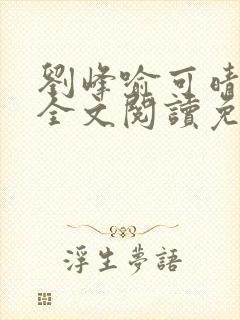 劉峰喻可晴
全文閱讀免
浮生夢語